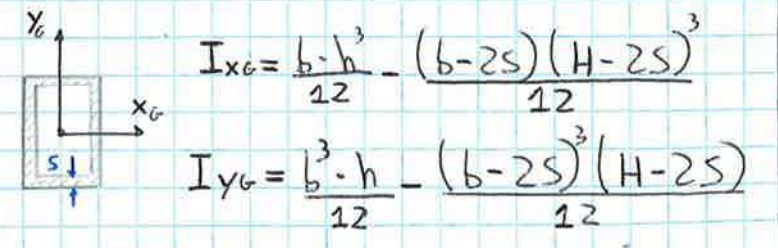 Y_G
I_XG = b·h³/12 - (b-2S)(H-2S)³/12
X_G
S
I_YG = b³·h/12 - (b-2S)³(H-2S)/12